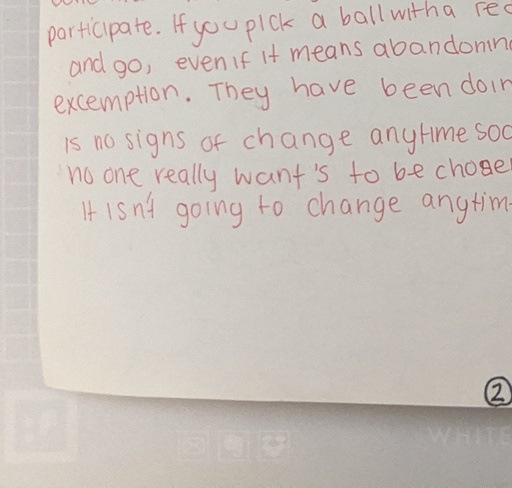 participate. If you pick a ball with a red
and go, even if it means abandonin
excemption. They have been doin
is no signs of change anytime soo
no one really want's to be chose
It isn't going to change anytim
2
WHITE